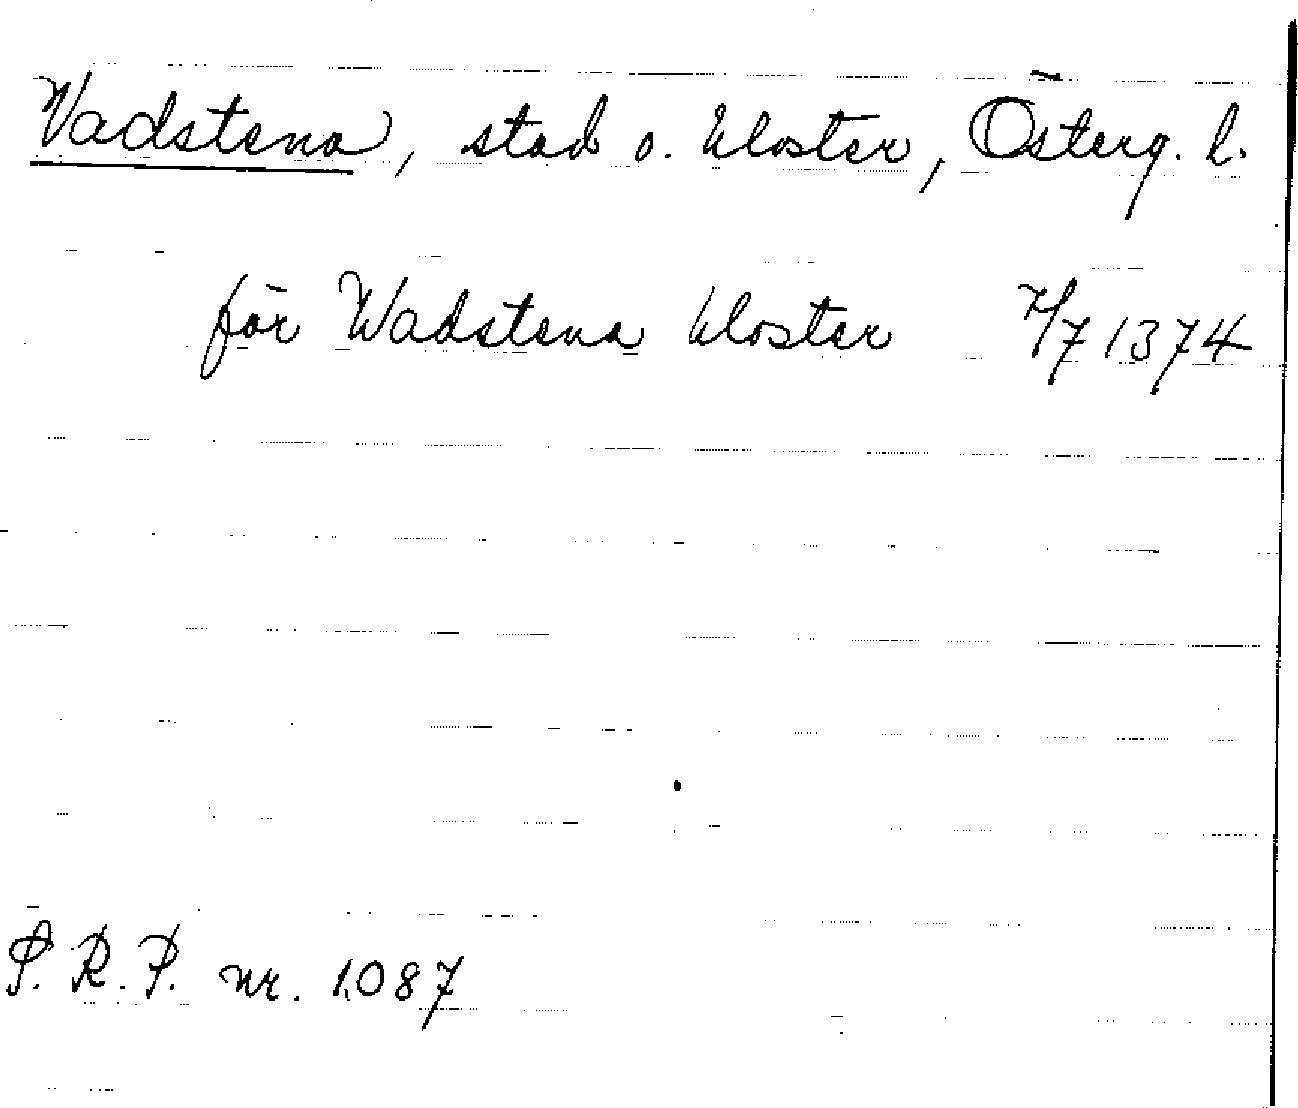 Wadstena, stad o. kloster, Österg. l.
för Wadstena kloster 4/7 1374
P. R. P. nr. 1087